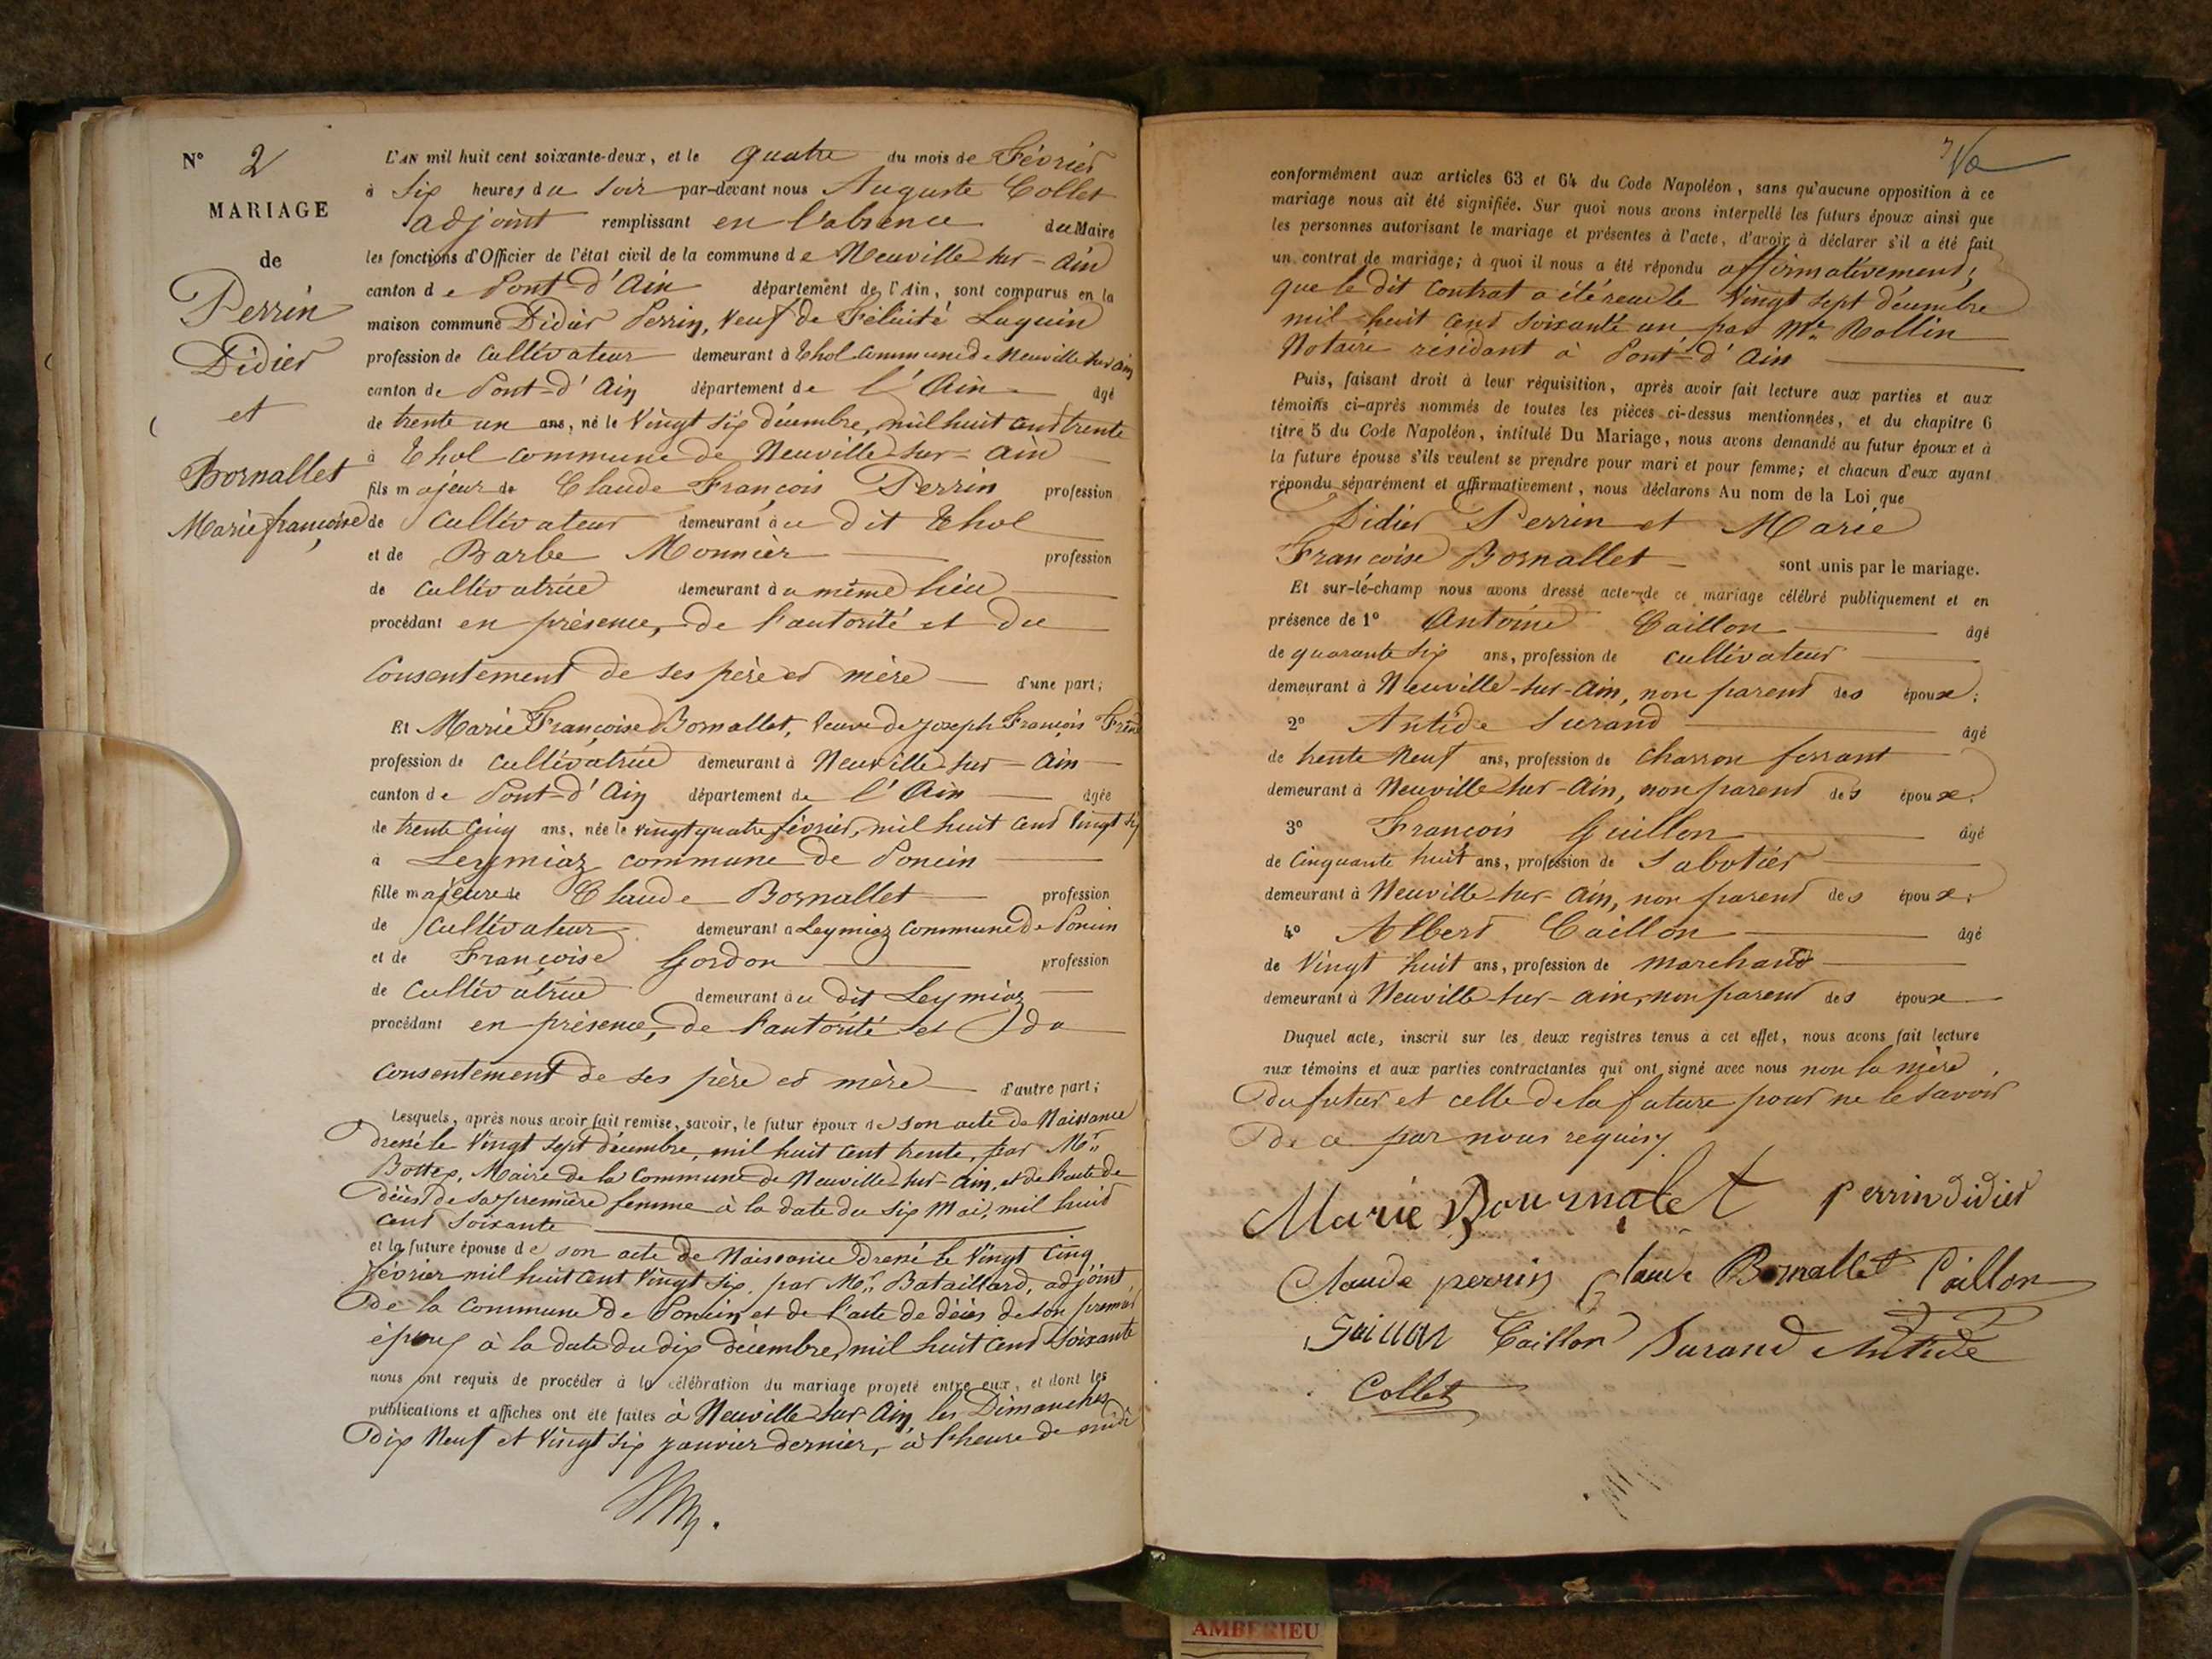 N° 2
MARIAGE
de
Perrin
Didier
et
Bornallet
Marie françoise
L'AN mil huit cent soixante-deux, et le quatre du mois de Février
à Six heures du soir par-devant nous Auguste Collet
adjoint remplissant en l'absence du Maire
les fonctions d'Officier de l'état civil de la commune de Neuville sur-Ain
canton de Pont-d'Ain département de l'Ain, sont comparus en la
maison commune Didier Perrin, Veuf de Félicité Luquin
profession de Cultivateur demeurant à Thol commune de Neuville sur Ain
canton de Pont-d'Ain département de l'Ain âgé
de trente un ans, né le Vingt six décembre, mil huit cent trente
à Thol commune de Neuville-sur-Ain
fils majeur de Claude François Perrin profession
de Cultivateur demeurant au dit Thol
et de Barbe Monnier profession
de Cultivatrice demeurant au même lieu
procédant en présence, de l'autorité et du
Consentement de ses père et mère d'une part;
Et Marie Françoise Bornallet, Veuve de Joseph François
profession de Cultivatrice demeurant à Neuville-sur-Ain
canton de Pont-d'Ain département de l'Ain âgée
de trente cinq ans, née le vingt quatre février, mil huit cent Vingt six
à Leymiaz commune de Poncin
fille majeure de Claude Bornallet profession
de Cultivateur demeurant à Leymiaz commune de Poncin
et de Françoise Gordon profession
de Cultivatrice demeurant au dit Leymiaz
procédant en présence, de l'autorité et du
Consentement de ses père et mère d'autre part;
Lesquels, après nous avoir fait remise, savoir, le futur époux de son acte de Naissance
dressé le Vingt sept décembre, mil huit cent trente, par Mr
Bottex, Maire de la Commune de Neuville-sur-Ain, et de l'acte de
décès de sa première femme à la date du six Mai, mil huit
cent soixante
et la future épouse de son acte de Naissance dressé le Vingt cinq
février mil huit cent Vingt six, par Mr Bataillard, adjoint
De la Commune de Poncin, et de l'acte de décès de son premier
époux à la date du dix décembre, mil huit cent soixante
nous ont requis de procéder à la célébration du mariage projeté entre eux, et dont les
publications et affiches ont été faites à Neuville-sur-Ain les Dimanches
Dix Neuf et Vingt six janvier dernier, à l'heure de midi
conformément aux articles 63 et 64 du Code Napoléon, sans qu'aucune opposition à ce
mariage nous ait été signifiée. Sur quoi nous avons interpellé les futurs époux ainsi que
les personnes autorisant le mariage et présentes à l'acte, d'avoir à déclarer s'il a été fait
un contrat de mariage; à quoi il nous a été répondu affirmativement,
que le dit Contrat a été reçu le Vingt sept décembre
mil huit cent soixante un par Me Rollin
Notaire résidant à Pont-d'Ain
Puis, faisant droit à leur réquisition, après avoir fait lecture aux parties et aux
témoins ci-après nommés de toutes les pièces ci-dessus mentionnées, et du chapitre 6
titre 5 du Code Napoléon, intitulé Du Mariage, nous avons demandé au futur époux et à
la future épouse s'ils veulent se prendre pour mari et pour femme; et chacun d'eux ayant
répondu séparément et affirmativement, nous déclarons Au nom de la Loi que
Didier Perrin et Marie
Françoise Bornallet sont unis par le mariage.
Et sur-lé-champ nous avons dressé acte de ce mariage célébré publiquement et en
présence de 1° Antoine Caillon âgé
de quarante six ans, profession de cultivateur
demeurant à Neuville-sur-Ain, non parent des époux;
2° Antide Surand âgé
de trente Neuf ans, profession de Charron ferrant
demeurant à Neuville sur-Ain, non parent des époux;
3° François Guillon âgé
de Cinquante huit ans, profession de Sabotier
demeurant à Neuville-sur-Ain, non parent des époux;
4° Albert Caillon âgé
de Vingt huit ans, profession de Marchand
demeurant à Neuville-sur-ain, non parent des époux
Duquel acte, inscrit sur les deux registres tenus à cet effet, nous avons fait lecture
aux témoins et aux parties contractantes qui ont signé avec nous non la mère
Du futur et celle de la future pour ne le savoir
De ce par nous requis.
Marie Bournalet perrin didier
Claude perrin Claude Bornallet Caillon
Guillon Caillon Surand Antide
Collet
AMBERIEU